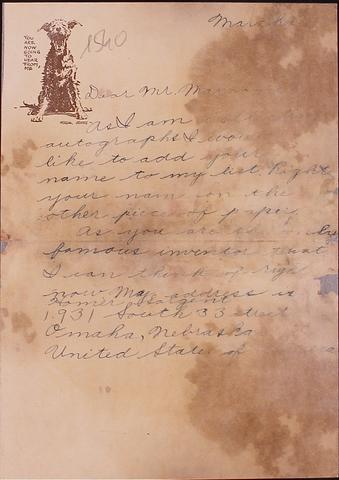 YOU
ARE
NOW
GOING
TO
HEAR
FROM
ME
March
1940
Dear Mr. Mar
As I am
autographs I wou
like to add your
name to my list. Right
your name on the
other piece of paper.
As you are
famous inventor that
I can think of righ
now. My address is
Homer Sargent
1931 South 33 street
Omaha, Nebraska
United States of